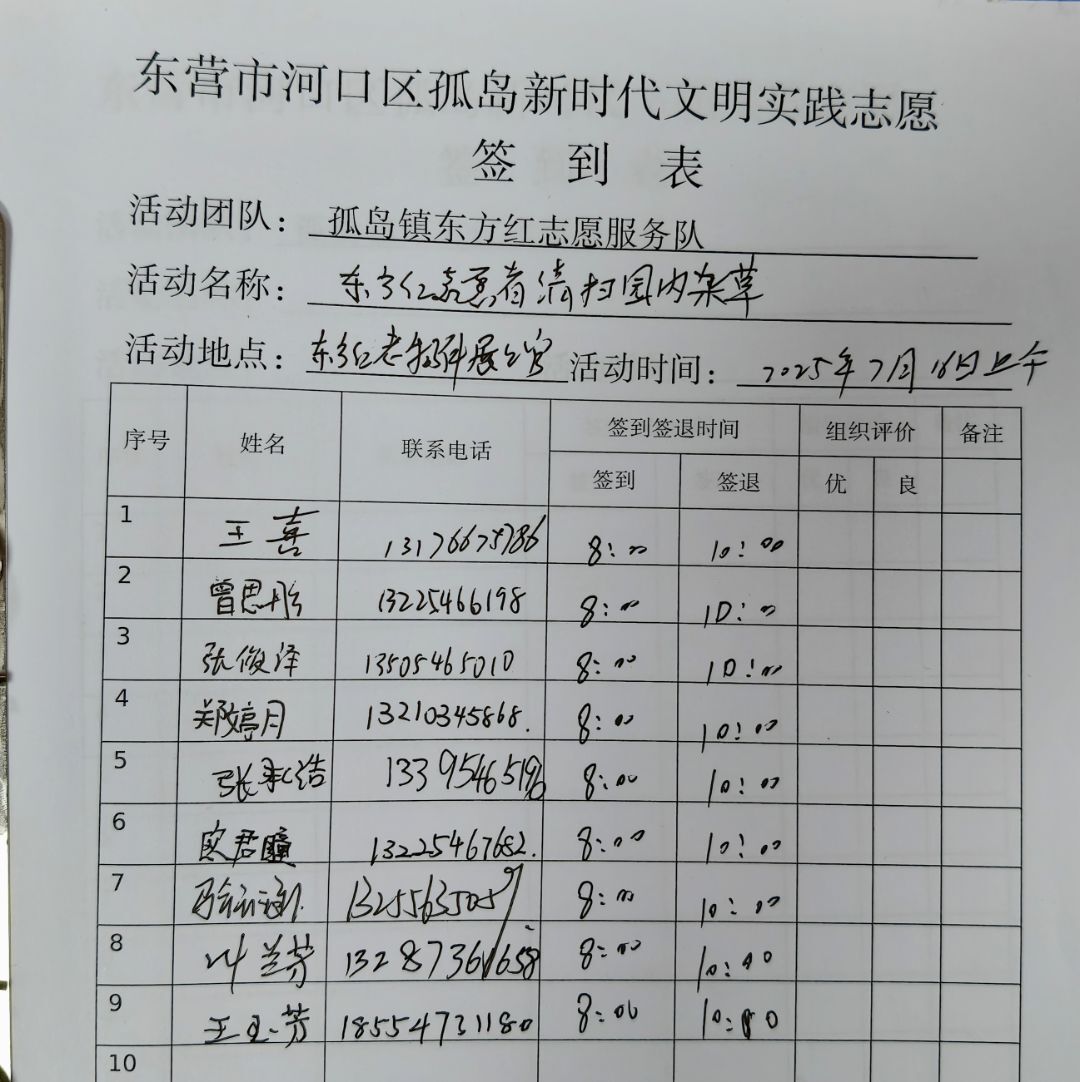 东营市河口区孤岛新时代文明实践志愿
签 到 表
活动团队： 孤岛镇东方红志愿服务队
活动名称： 东方红志愿者清扫园内杂草
活动地点： 东方红老物件展览馆 活动时间： 2025年7月16日上午
序号 姓名 联系电话 签到签退时间 组织评价 备注
签到 签退 优 良
1 王喜 13176675786 8:00 10:00
2 曾思彤 13225466198 8:00 10:00
3 张俊泽 13505465010 8:00 10:00
4 郑婷月 13210345868. 8:00 10:00
5 张 浩 13395465196 8:00 10:00
6 君瞳 13225467682. 8:00 10:00
7 13255635059 8:00 10:00
8 叶兰芳 13287361658 8:00 10:00
9 王玉芳 18554731180 8:00 10:00
10